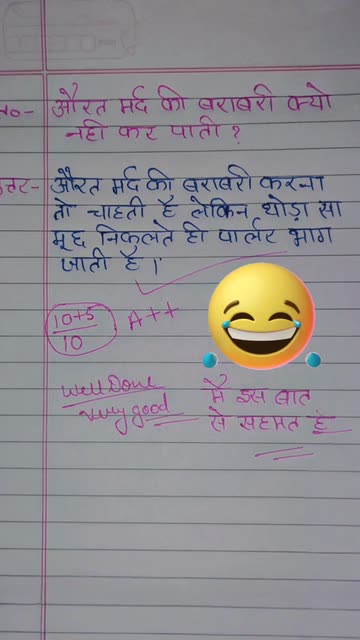 औरत मर्द की बराबरी क्यो
नही कर पाती ?
औरत मर्द की बराबरी करना
तो चाहती है लेकिन थोड़ा सा
मूछ निकलते ही पार्लर भाग
जाती है ।
10+5
10
A++
well Done
very good
मै इस बात
से सहमत हूं